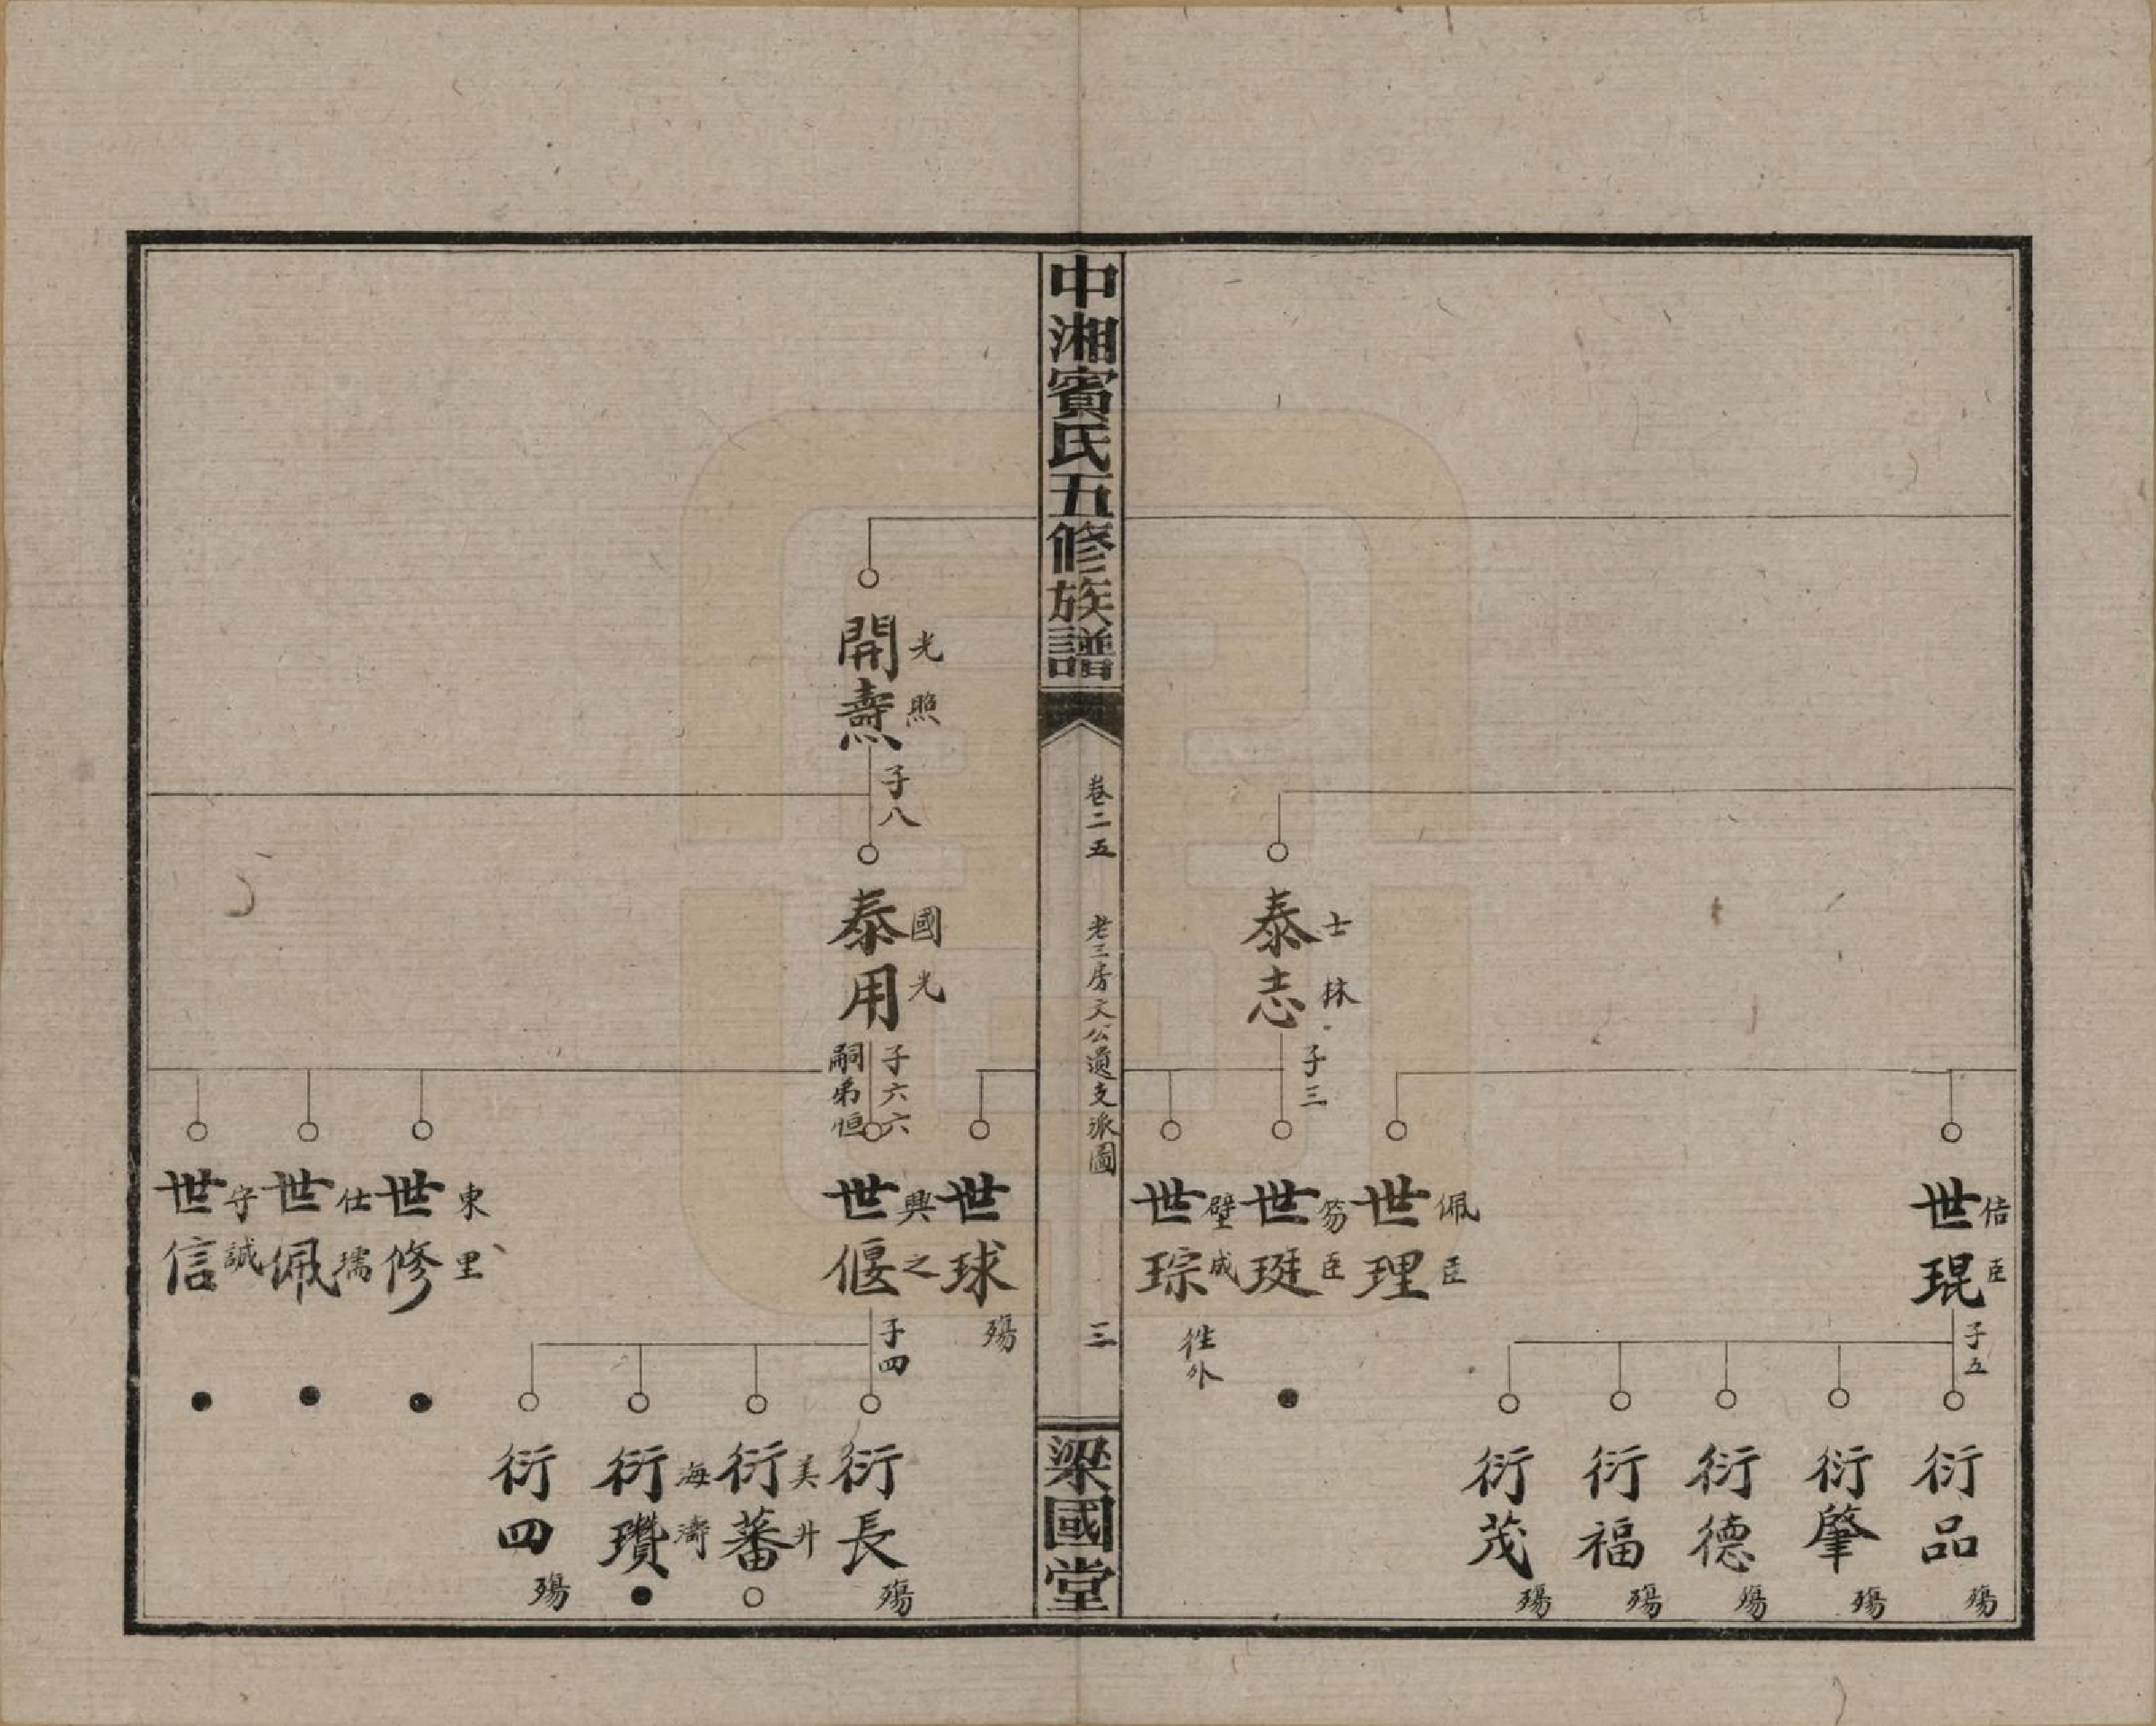 佶臣
世琨
子五
衍品
殤
衍肇
殤
衍德
殤
衍福
殤
衍茂
殤
士林
泰志
子三
佩臣
世理
笏臣
世珽
璧成
世琮
徃外
中湘賓氏五修族譜
卷二五
老三房文公遺支派圖
三
梁國堂
世球
殤
光照
開燾
子八
國光
泰用
子六六
嗣弟恒
興之
世偃
子四
衍長
殤
美升
衍蕃
海濤
衍瓚
衍四
殤
東里
世修
仕瑞
世佩
守誠
世信